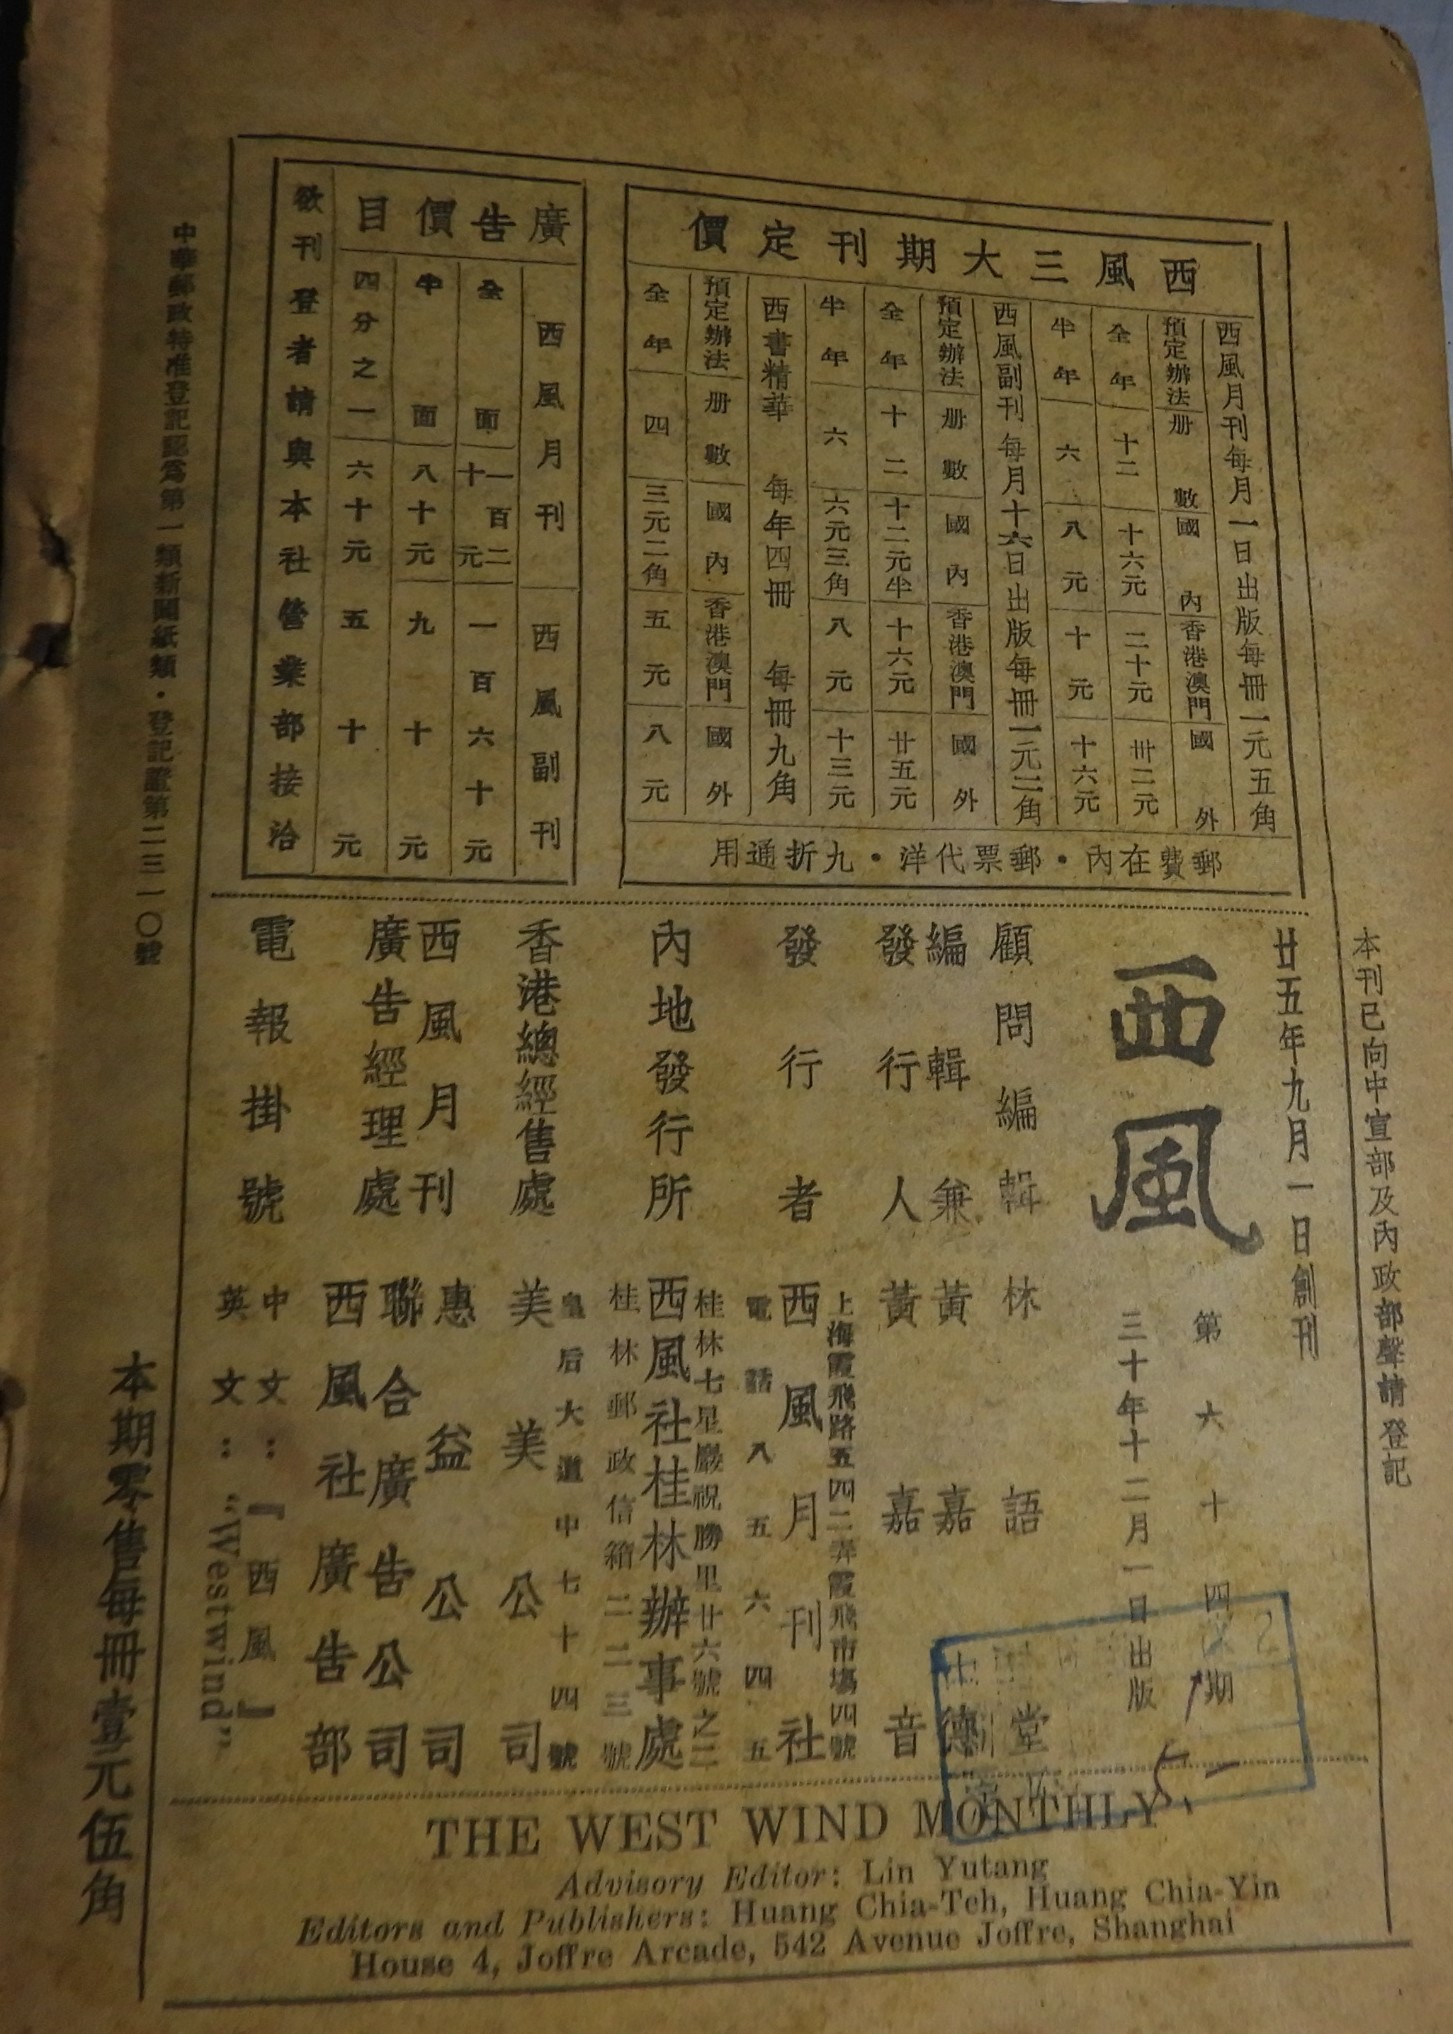 本刊已向中宣部及內政部聲請登記
西風三大期刊定價
西風月刊每月一日出版每冊一元五角
預定辦法 册數 國內 香港澳門 國外
全年 十二 十六元 二十元 卅二元
半年 六 八元 十元 十六元
西風副刊每月十六日出版每冊一元二角
預定辦法 册數 國內 香港澳門 國外
全年 十二 十二元半 十六元 廿五元
半年 六 六元三角 八元 十三元
西書精華 每年四冊 每冊九角
預定辦法 册數 國內 香港澳門 國外
全年 四 三元二角 五元 八元
郵費在內・郵票代洋・九折通用
廣告價目
西風月刊 西風副刊
全面 一百二十元 一百六十元
半面 八十元 九十元
四分之一 六十元 五十元
欲刊登者請與本社營業部接洽
廿五年九月一日創刊
西風
第六十四期
三十年十二月一日出版
顧問編輯 林語堂
編輯兼 黃嘉德
發行人 黃嘉音
上海霞飛路五四二弄霞飛市場四號
發行者 西風月刊社
電話八五六四五
桂林七星巖祝勝里廿六號之二
內地發行所 西風社桂林辦事處
桂林郵政信箱二二三號
皇后大道中七十四號
香港總經售處 美美公司
惠益公司
西風月刊 聯合廣告公司
廣告經理處 西風社廣告部
電報掛號
中文：『西風』
英文："Westwind"
THE WEST WIND MONTHLY
Advisory Editor: Lin Yutang
Editors and Publishers: Huang Chia-Teh, Huang Chia-Yin
House 4, Joffre Arcade, 542 Avenue Joffre, Shanghai
中華郵政特准登記認為第一類新聞紙類・登記證第二三一〇號
本期零售每冊壹元伍角